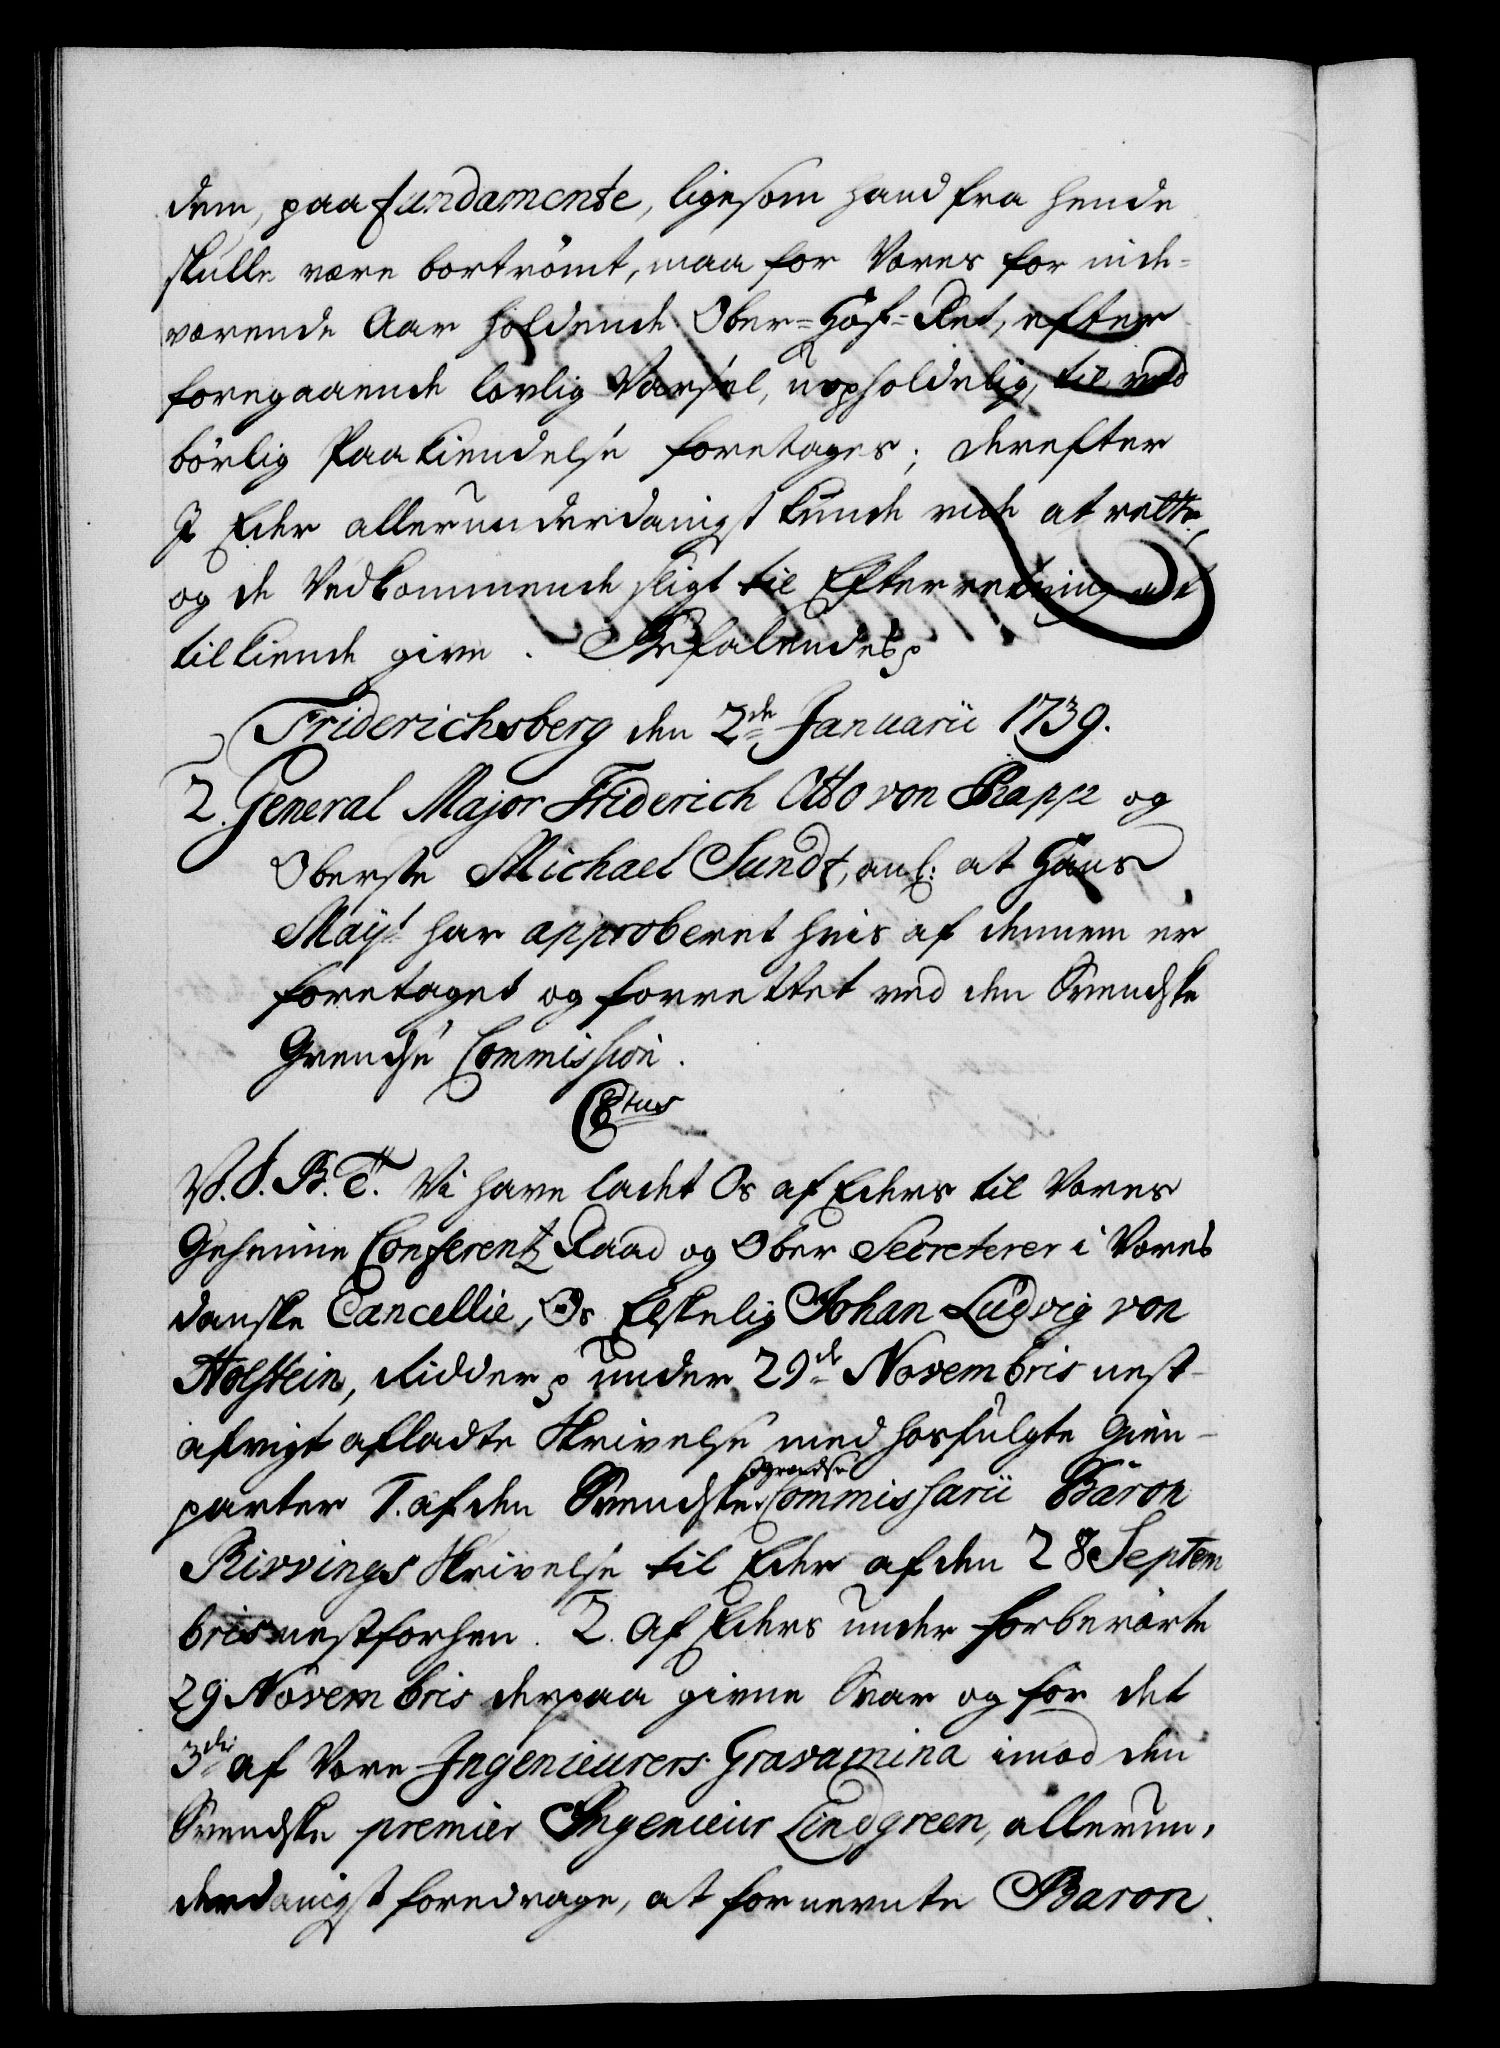 dem, paa fundamente, ligesom hand fra hende
skulle være bortrömt, maa for Vores for inde-
værende Aar holdende Ober-Hof-Ret, efter
foregaaende lovlig Varsel, uopholdelig, til ved
börlig Paakiendelse foretages; derefter
I Eder allerunderdanigst kunde vide at rette,
og de Vedkommende sligt til Efterretning at
tilkiende give. Befalendes p
Friderichsberg den 2de Januarii 1739.
2. General Major Friderich Otto von Rappe og
Oberste Michael Sundt, anl: at Hans
Mayt har approberet hvis af dennem er
foretaget og forrettet ved den Svendske
Grendse Commission.
C8tus
V. S. B. T. Vi have ladet Os af Eders til Vores
Geheime Conferentz Raad og Ober Secreterer i Vores
danske Cancellie, Os Elskelig Johan Ludvig von
Holstein, Ridder p under 29de Novembris nest-
afvigt afladte Skrivelse med hosfulgte Gien-
parter 1. af den Svendske Grendse Commissarii Baron
Rivvings Skrivelse til Eder af den 28 Septem
bris nestforhen. 2. af Eders under forberörte
29 Novembris derpaa givne Svar og for det
3die af Vore Ingenieurers Gravamina imod den
Svendske premier Ingenieur Lindgreen, allerun-
derdanigst foredrage, at fornevnte Baron